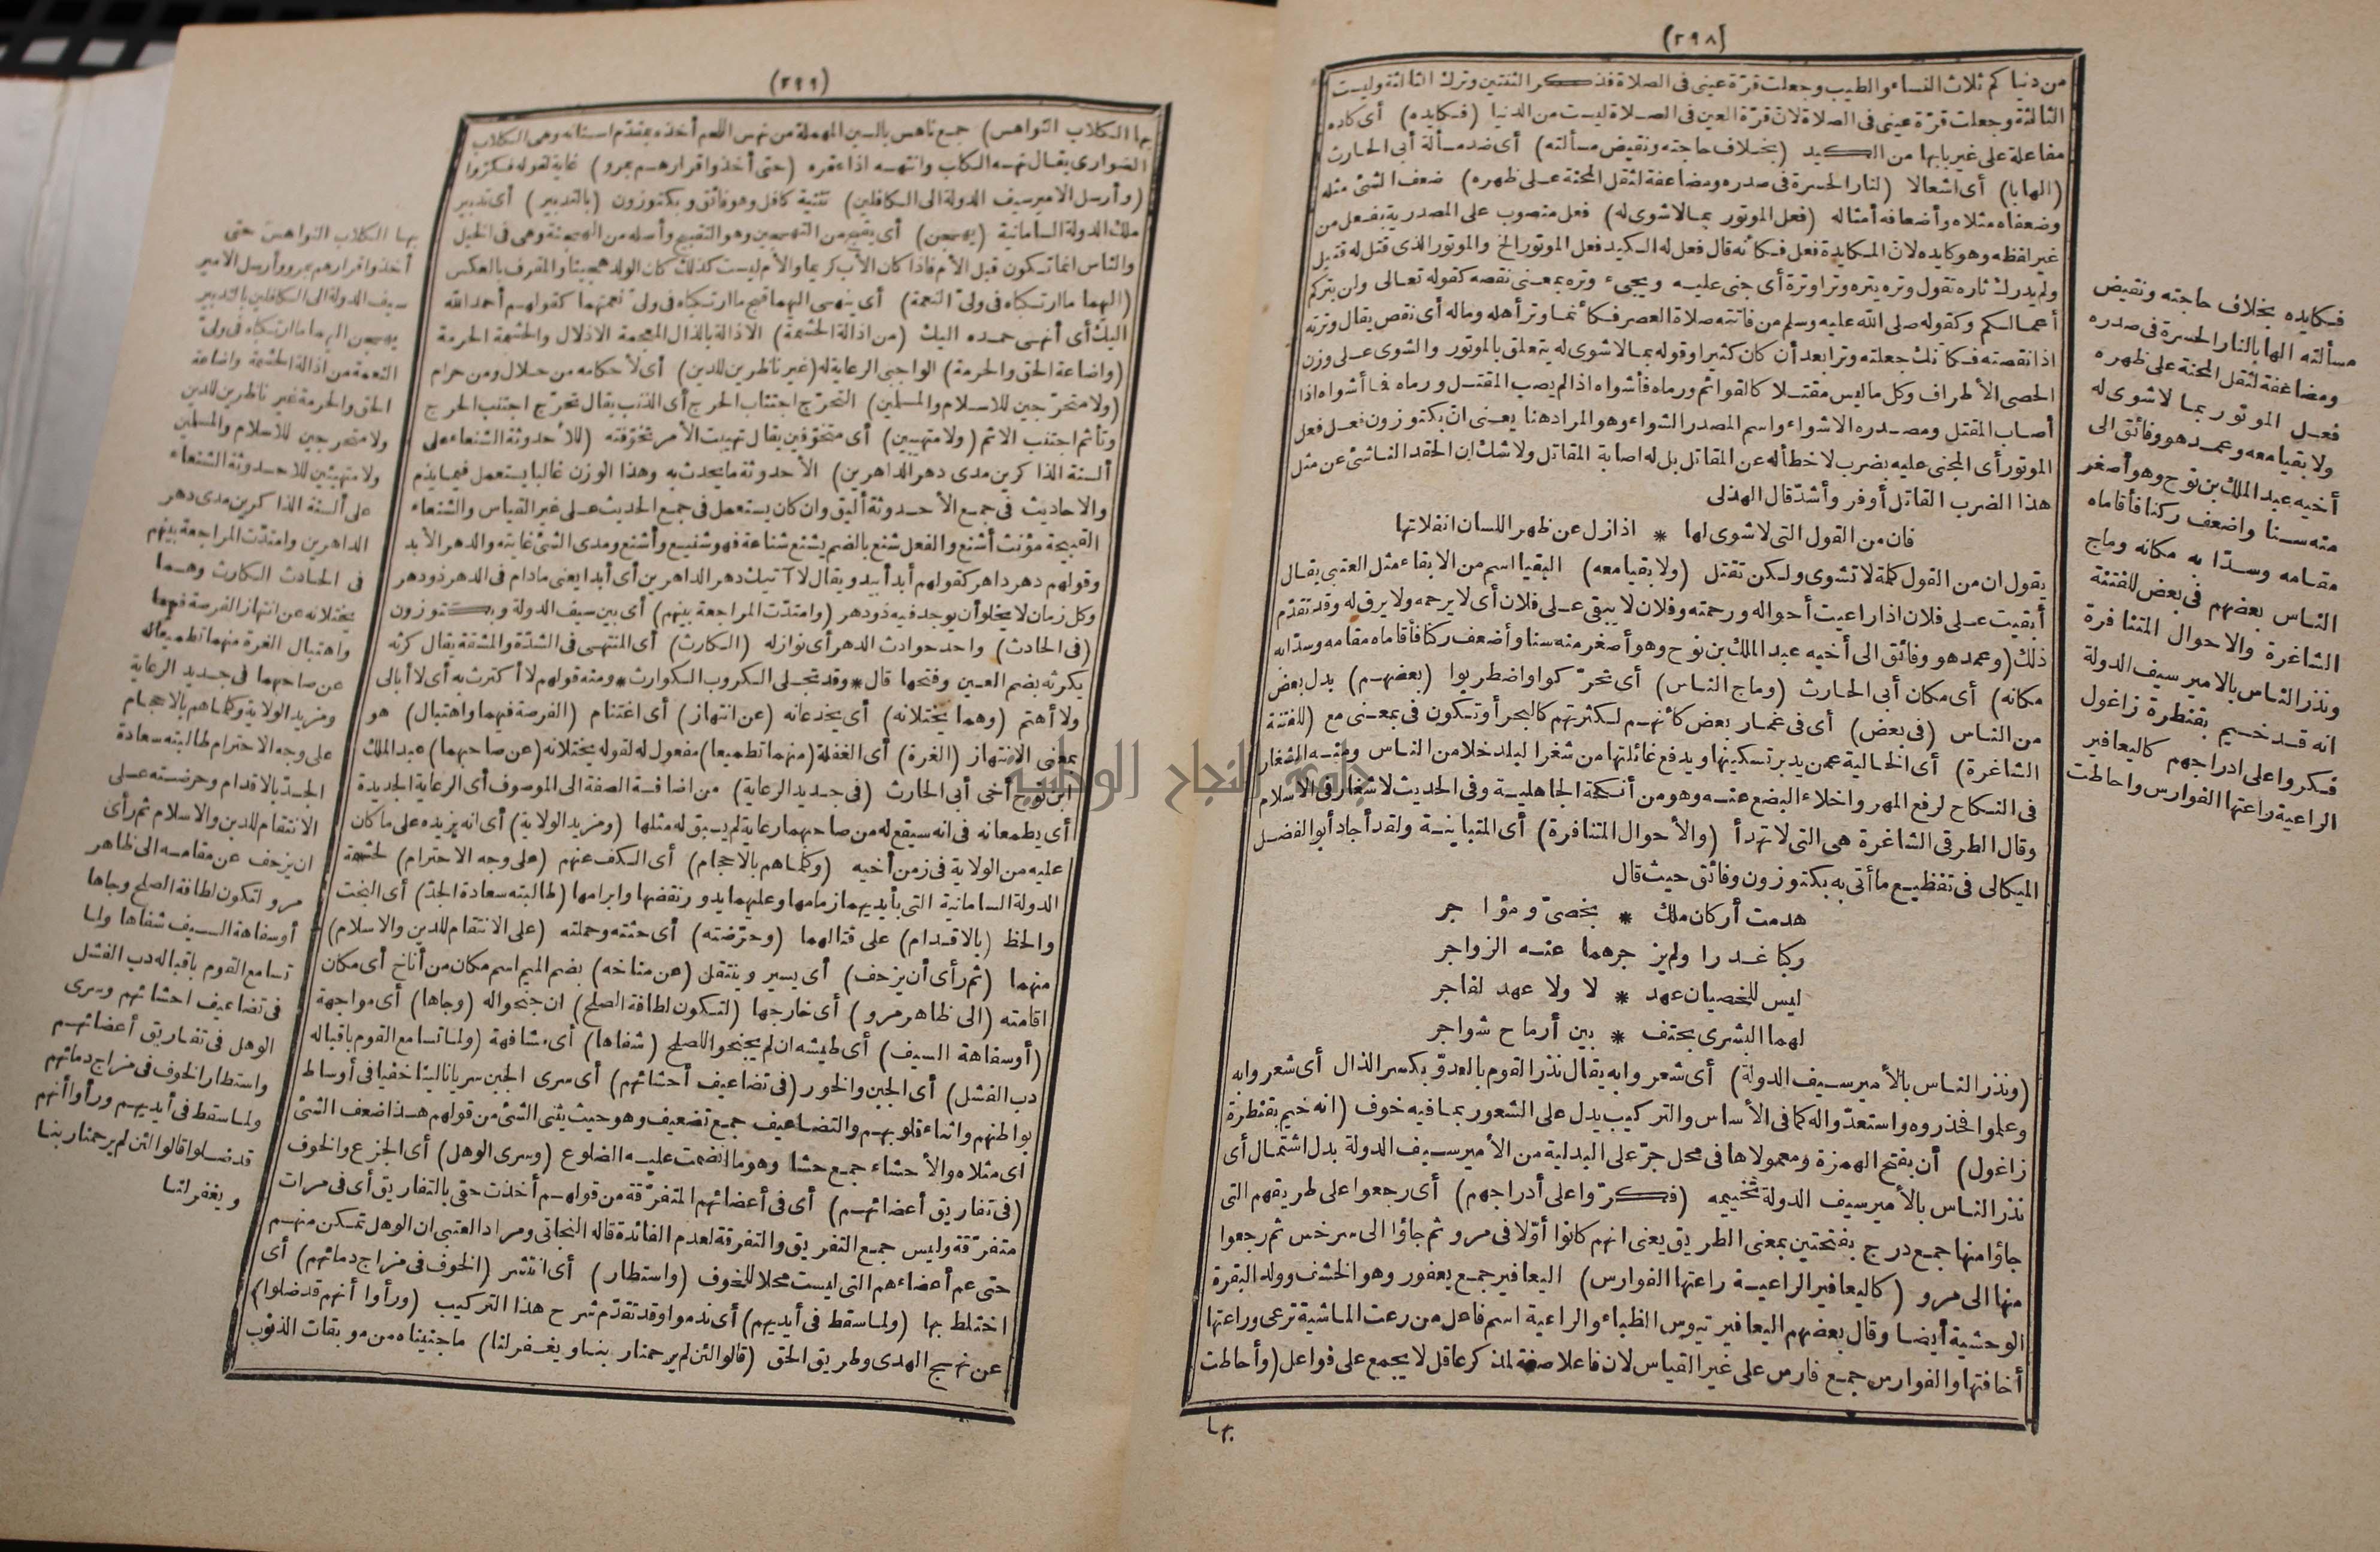 (٢٩٨)
من دنياكم ثلاث النساء والطيب وجعلت قرّة عيني في الصلاة فذكر الثنتين وترك الثالثة وليست
الثالثة وجعلت قرّة عيني في الصلاة لان قرّة العين في الصلاة ليست من الدنيا (فكايده) أي كاده
مفاعلة على غير بابها من الكيد (بخلاف حاجته ونقيض مسألته) أي ضد مسألة أبي الحارث
(الهابا) أي اشعالا (لنار الحسرة في صدره ومضاعفة لثقل المحنة على ظهره) ضعف الشئ مثله
وضعفاه مثلاه وأضعافه أمثاله (فعل الموتور بما لا شوى له) فعل منصوب على المصدرية بفعل من
غير لفظه وهو كايده لانّ المكايدة فعل فكأنه قال فعل له الكيد فعل الموتور الخ والموتور الذى قتل له قتيل
ولم يدرك ثاره تقول وتره يتره وترا وترة أى جنى عليه ويجيء وتره بمعنى نقصه كقوله تعالى ولن يتركم
أعمالكم وكقوله صلى الله عليه وسلم من فاتته صلاة العصر فكأنما وتر أهله وماله أى نقص يقال وترته
اذا نقصته فكأنك جعلته وترا بعد أن كان كثيرا وقوله بما لا شوى له يتعلق بالموتور والشوى على وزن
الحصى الأطراف وكل ما ليس مقتلا كالقوائم ورماه فأشواه اذا لم يصب المقتل ورماه فما أشواه اذا
أصاب المقتل ومصدره الاشواء واسم المصدر الشواء وهو المراد هنا يعنى انّ بكتوزون فعل فعل
الموتور أى المجنى عليه بضرب لا خطأ له عن المقاتل بل له اصابة المقاتل ولا شك ان الحقد الناشئ عن مثل
هذا الضرب القاتل أوفر وأشدّ قال الهذلى
فان من القول التى لا شوى لها * اذا زل عن ظهر اللسان انفلاتها
يقول ان من القول كلمة لا تشوى ولكن تقتل (ولا بقيا معه) البقيا اسم من الابقاء مثل العتبى يقال
أبقيت على فلان اذا راعيت أحواله ورحمته وفلان لا يبقى على فلان أى لا يرحمه ولا يرق له وقد تقدّم
ذلك (وعمد هو وفائق الى أخيه عبد الملك بن نوح وهو أصغر منه سنا وأضعف ركنا فأقاماه مقامه وسدّا به
مكانه) أى مكان أبى الحارث (وماج الناس) أى تحرّكوا واضطربوا (بعضهم) بدل بعض
من الناس (فى بعض) أى فى غمار بعض كأنهم لكثرتهم كالبحر أو تكون فى بمعنى مع (للفتنة
الشاغرة) أى الخالية عمن يدبر تسكينها ويدفع غائلتها من شغر البلد خلا من الناس ومنه الشغار
فى النكاح لرفع المهر واخلاء البضع عنه وهو من أنكحة الجاهلية وفى الحديث لا شغار فى الاسلام
وقال الطرقى الشاغرة هى التى لا تهدأ (والأحوال المتنافرة) أى المتباينة ولقد أجاد أبو الفضل
الميكالى فى تفظيع ما أتى به بكتوزون وفائق حيث قال
هدمت أركان ملك * بخصىّ ومؤاجر
ركبا غدرا ولم يزجرهما عنه الزواجر
ليس للخصيان عهد * لا ولا عهد لفاجر
لهما البشرى بحتف * بين أرماح شواجر
(ونذر الناس بالأمير سيف الدولة) أى شعروا به يقال نذر القوم بالعدوّ بكسر الذال أى شعروا به
وعلموا فحذروه واستعدّوا له كما فى الأساس والتركيب يدل على الشعور بما فيه خوف (انه خيم بقنطرة
زاغول) أن بفتح الهمزة ومعمولاها فى محل جرّ على البدلية من الأمير سيف الدولة بدل اشتمال أى
نذر الناس بالأمير سيف الدولة تخييمه (فكرّوا على أدراجهم) أى رجعوا على طريقهم التى
جاؤا منها جمع درج بفتحتين بمعنى الطريق يعنى انهم كانوا أوّلا فى مرو ثم جاؤا الى سرخس ثم رجعوا
منها الى مرو (كاليعافير الراعية راعتها الفوارس) اليعافير جمع يعفور وهو الخشف وولد البقرة
الوحشية أيضا وقال بعضهم اليعافير تيوس الظباء والراعية اسم فاعل من رعت الماشية ترعى وراعتها
أخافتها والفوارس جمع فارس على غير القياس لان فاعلا صفة لمذكر عاقل لا يجمع على فواعل (وأحاطت
بها
فكايده بخلاف حاجته ونقيض
مسألته الهابا لنار الحسرة فى صدره
ومضاعفة لثقل المحنة على ظهره
فعل الموتور بما لا شوى له
ولا بقيا معه وعمد هو وفائق الى
أخيه عبد الملك بن نوح وهو أصغر
منه سنا واضعف ركنا فأقاماه
مقامه وسدّا به مكانه وماج
الناس بعضهم فى بعض للفتنة
الشاغرة والاحوال المتنافرة
ونذر الناس بالامير سيف الدولة
انه قد خيم بقنطرة زاغول
فكروا على ادراجهم كاليعافير
الراعية راعتها الفوارس واحاطت
جامعة النجاح الوطنية
(٢٩٩)
بها الكلاب النواهس) جمع ناهس بالسين المهملة من نهس اللحم أخذه بمقدّم اسنانه وهى الكلاب
الضوارى يقال نهسه الكلب وانتهسه اذا عقره (حتى أخذوا قرارهم بمرو) غاية لقوله فكرّوا
(وأرسل الامير سيف الدولة الى الكافلين) تثنية كافل وهو فائق وبكتوزون (بالتدبير) أى تدبير
ملك الدولة السامانية (يهجن) أى يقبح من التهجين وهو التقبيح وأصله من الهجنة وهى فى الخيل
والناس انما تكون قبل الأم فاذا كان الأب كريما والأم ليست كذلك كان الولد هجينا والمقرف بالعكس
(الهما ما ارتكباه فى ولىّ النعمة) أى ينهى الهما قبح ما ارتكباه فى ولىّ نعمتهما كقولهم أحمد الله
اليك أى أنهى حمده اليك (من اذالة الحشمة) الاذالة بالذال المعجمة الاذلال والحشمة الحرمة
(واضاعة الحق والحرمة) الواجبى الرعاية له (غير ناظرين للدين) أى لأحكامه من حلال ومن حرام
(ولا متحرّجين للاسلام والمسلمين) التحرّج اجتناب الحرج أى الذنب يقال تحرّج اجتنب الحرج
وتأثم اجتنب الاثم (ولا متهيبين) أى متخوّفين يقال تهيبت الأمر تخوّفته (للأحدوثة الشنعاء على
ألسنة الذاكرين مدى دهر الداهرين) الأحدوثة ما يتحدث به وهذا الوزن غالبا يستعمل فيما يذم
والاحاديث فى جمع الأحدوثة أليق وان كان يستعمل فى جمع الحديث على غير القياس والشنعاء
القبيحة مؤنث أشنع والفعل شنع بالضم يشنع شناعة فهو شنيع وأشنع ومدى الشئ غايته والدهر الأبد
وقولهم دهر داهر كقولهم أبد أبيد ويقال لا آتيك دهر الداهرين أى أبدا يعنى ما دام فى الدهر ذو دهر
وكل زمان لا يخلو أن يوجد فيه ذو دهر (وامتدّت المراجعة بينهم) أى بين سيف الدولة وبكتوزون
(فى الحادث) واحد حوادث الدهر أى نوازله (الكارث) أى المنتهى فى الشدّة والمشقة يقال كرثه
يكرثه بضم العين وفتحها قال * وقد تجلى الكروب الكوارث * ومنه قولهم لا أكترث به أى لا أبالى
ولا أهتم (وهما يختلانه) أى يخدعانه (عن انتهاز) أى اغتنام (الفرصة فيهما واهتبال) هو
بمعنى الانتهاز (الغرة) أى الغفلة (منهما تطميعا) مفعول له لقوله يختلانه (عن صاحبهما) عبد الملك
ابن نوح أخى أبى الحارث (فى جديد الرعاية) من اضافة الصفة الى الموصوف أى الرعاية الجديدة
أى يطمعانه فى انه سيقع له من صاحبهما رعاية لم يسبق له مثلها (ومزيد الولاية) أى انه يزيده على ما كان
عليه من الولاية فى زمن أخيه (وكلماهم بالاحجام) أى الكف عنهم (على وجه الاحترام) لحشمة
الدولة السامانية التى بأيديهما زمامها وعليهما يدور نقضها وابرامها (طالبته سعادة الجدّ) أى البخت
والحظ (بالاقدام) على قتالهما (وحرّضته) أى حثته وحملته (على الانتقام للدين والاسلام)
منهما (ثم رأى أن يزحف) أى يسير وينتقل (عن مناخه) بضم الميم اسم مكان من أناخ أى مكان
اقامته (الى ظاهر مرو) أى خارجها (لتكون لطافة الصلح) ان جنحوا له (وجاها) أى مواجهة
(أو سفاهة السيف) أى طيشه ان لم يجنحوا للصلح (شفاها) أى مشافهة (ولما تسامع القوم باقباله
دب الفشل) أى الجبن والخور (فى تضاعيف أحشائهم) أى سرى الجبن سريانا لينا خفيا فى أوساط
بواطنهم واثناء قلوبهم والتضاعيف جمع تضعيف وهو حيث يثنى الشئ من قولهم هذا ضعف الشئ
اى مثلاه والأحشاء جمع حشا وهو ما انضمت عليه الضلوع (وسرى الوهل) أى الجزع والخوف
(فى تفاريق أعضائهم) أى فى أعضائهم المتفرّقة من قولهم أخذت حقى بالتفاريق أى فى مرات
متفرّقة وليس جمع التفريق والتفرقة لعدم الفائدة قاله النجاتى ومراد العتبى ان الوهل تمكن منهم
حتى عم أعضاءهم التى ليست محلا للخوف (واستطار) أى انتشر (الخوف فى مزاج دمائهم) أى
اختلط بها (ولما سقط فى أيديهم) أى ندموا وقد تقدّم شرح هذا التركيب (ورأوا أنهم قد ضلوا)
عن نهج الهدى وطريق الحق (قالوا لئن لم يرحمنا ربنا ويغفر لنا) ما جنيناه من موبقات الذنوب
بها الكلاب النواهس حتى
أخذوا قرارهم بمرو وأرسل الامير
سيف الدولة الى الكافلين بالتدبير
يهجن الهما ما ارتكباه فى ولىّ
النعمة من اذالة الحشمة واضاعة
الحق والحرمة غير ناظرين للدين
ولا متحرجين للاسلام والمسلمين
ولا متهيبين للاحدوثة الشنعاء
على ألسنة الذاكرين مدى دهر
الداهرين وامتدّت المراجعة بينهم
فى الحادث الكارث وهما
يختلانه عن انتهاز الفرصة فيهما
واهتبال الغرة منهما تطميعا له
عن صاحبهما فى جديد الرعاية
ومزيد الولاية وكلماهم بالاحجام
على وجه الاحترام طالبته سعادة
الجدّ بالاقدام وحرضته على
الانتقام للدين والاسلام ثم رأى
ان يزحف عن مقامه الى ظاهر
مرو لتكون لطافة الصلح وجاها
أو سفاهة السيف شفاها ولما
تسامع القوم باقباله دب الفشل
فى تضاعيف احشائهم وسرى
الوهل فى تفاريق أعضائهم
واستطار الخوف فى مزاج دمائهم
ولما سقط فى أيديهم ورأوا أنهم
قد ضلوا قالوا لئن لم يرحمنا ربنا
ويغفر لنا